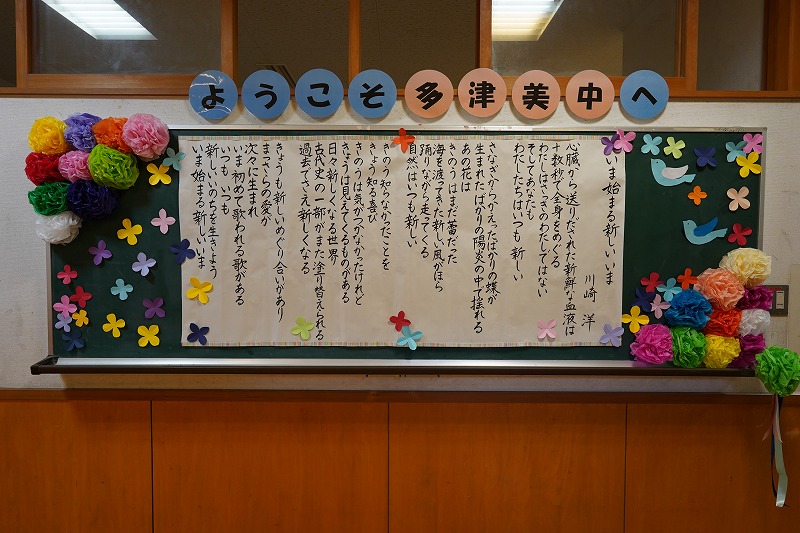 ようこそ多津美中へ
いま始まる新しいいま
川崎 洋
心臓から送りだされた新鮮な血液は
十数秒で全身をめぐる
わたしはさっきのわたしではない
そしてあなたも
わたしたちはいつも新しい
さなぎからかえったばかりの蝶が
生まれたばかりの陽炎の中で揺れる
あの花は
きのうはまだ蕾だった
海を渡ってきた新しい風がほら
踊りながら走ってくる
自然はいつも新しい
きのう知らなかったことを
きょう知る喜び
きのうは気がつかなかったけれど
きょうは見えてくるものがある
日々新しくなる世界
古代史の一部がまた塗り替えられる
過去でさえ新しくなる
きょうも新しいめぐり合いがあり
まっさらの愛が
次々に生まれ
いま初めて歌われる歌がある
いつもいつも
新しいいのちを生きよう
いま始まる新しいいま